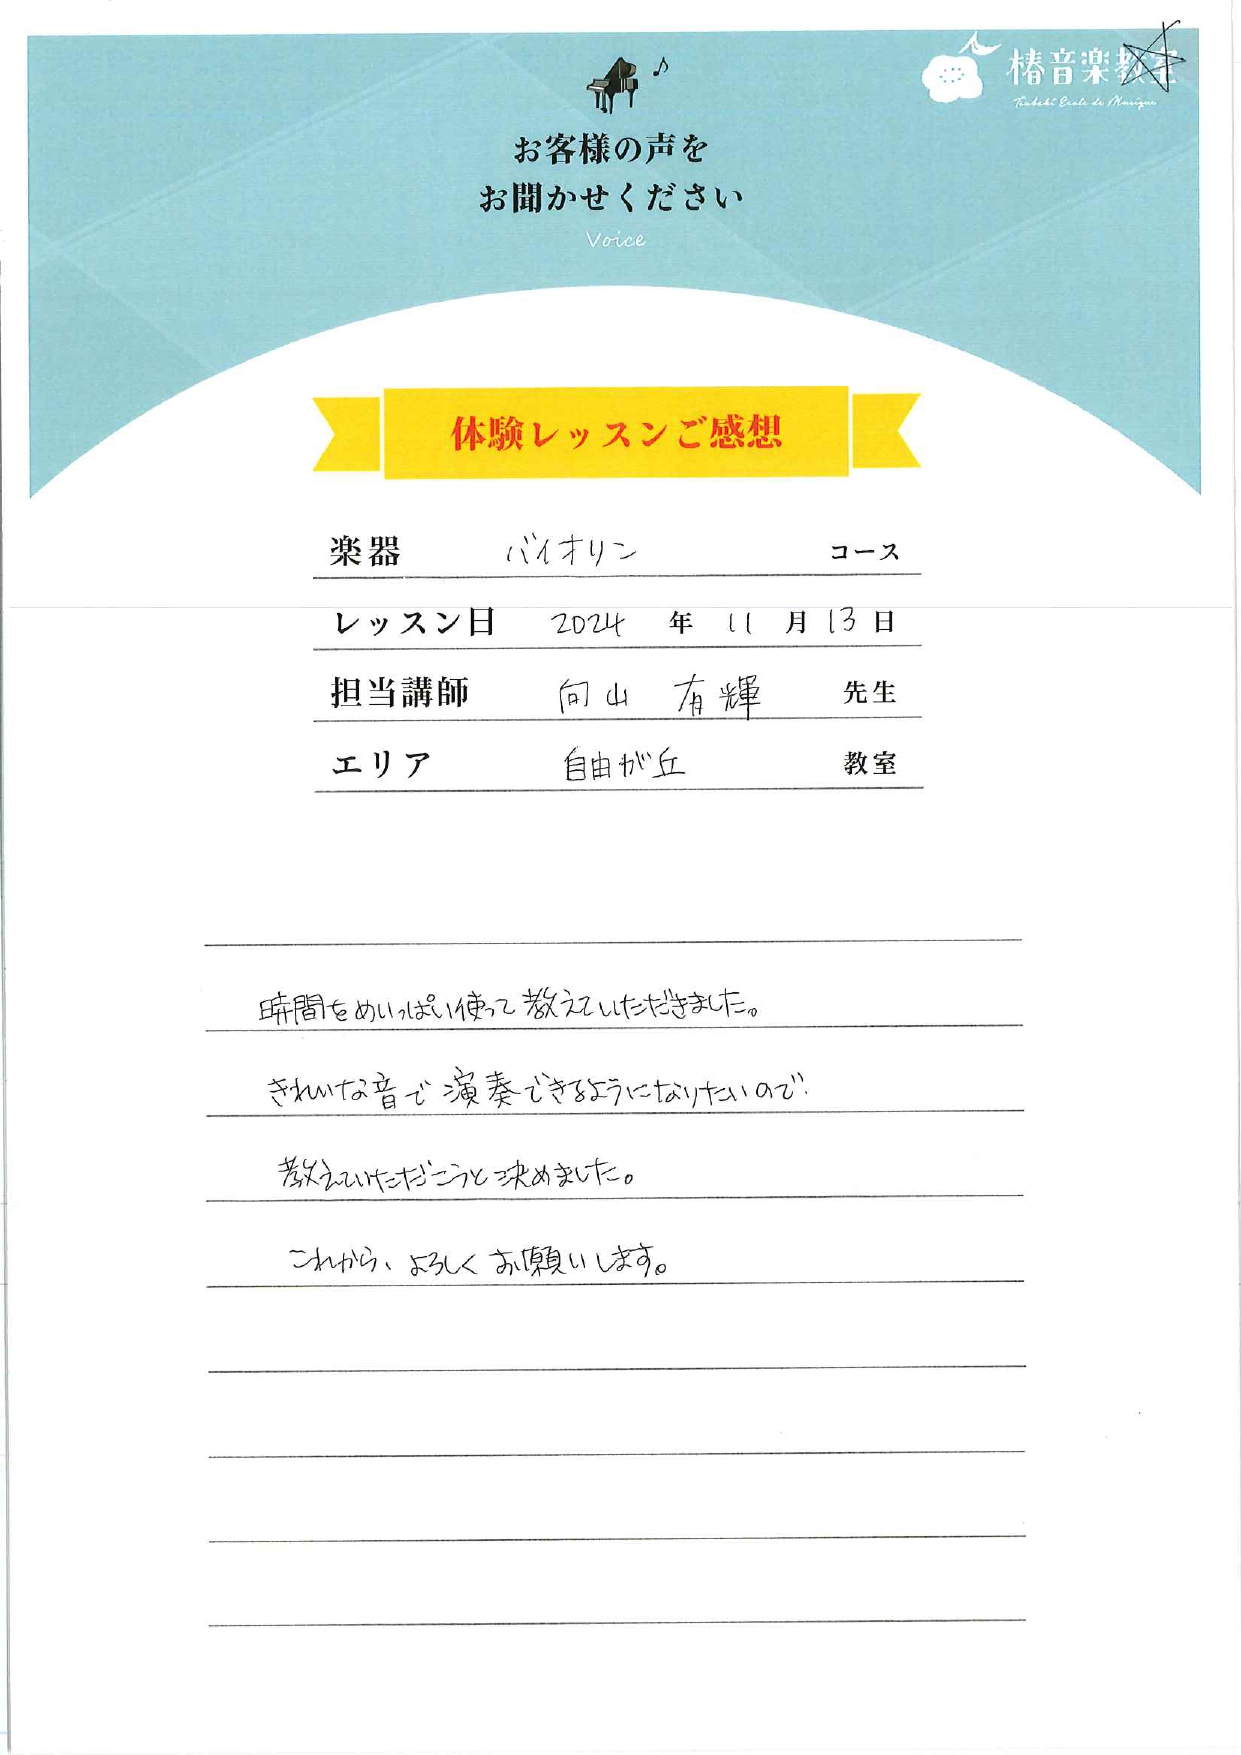 椿音楽教室
Tsubaki Ecole de Musique
お客様の声を
お聞かせください
Voice
体験レッスンご感想
楽器 バイオリン コース
レッスン日 2024 年 11 月 13 日
担当講師 向山 有輝 先生
エリア 自由が丘 教室
時間をめいっぱい使って教えていただきました。
きれいな音で演奏できるようになりたいので
教えていただこうと決めました。
これから、よろしくお願いします。